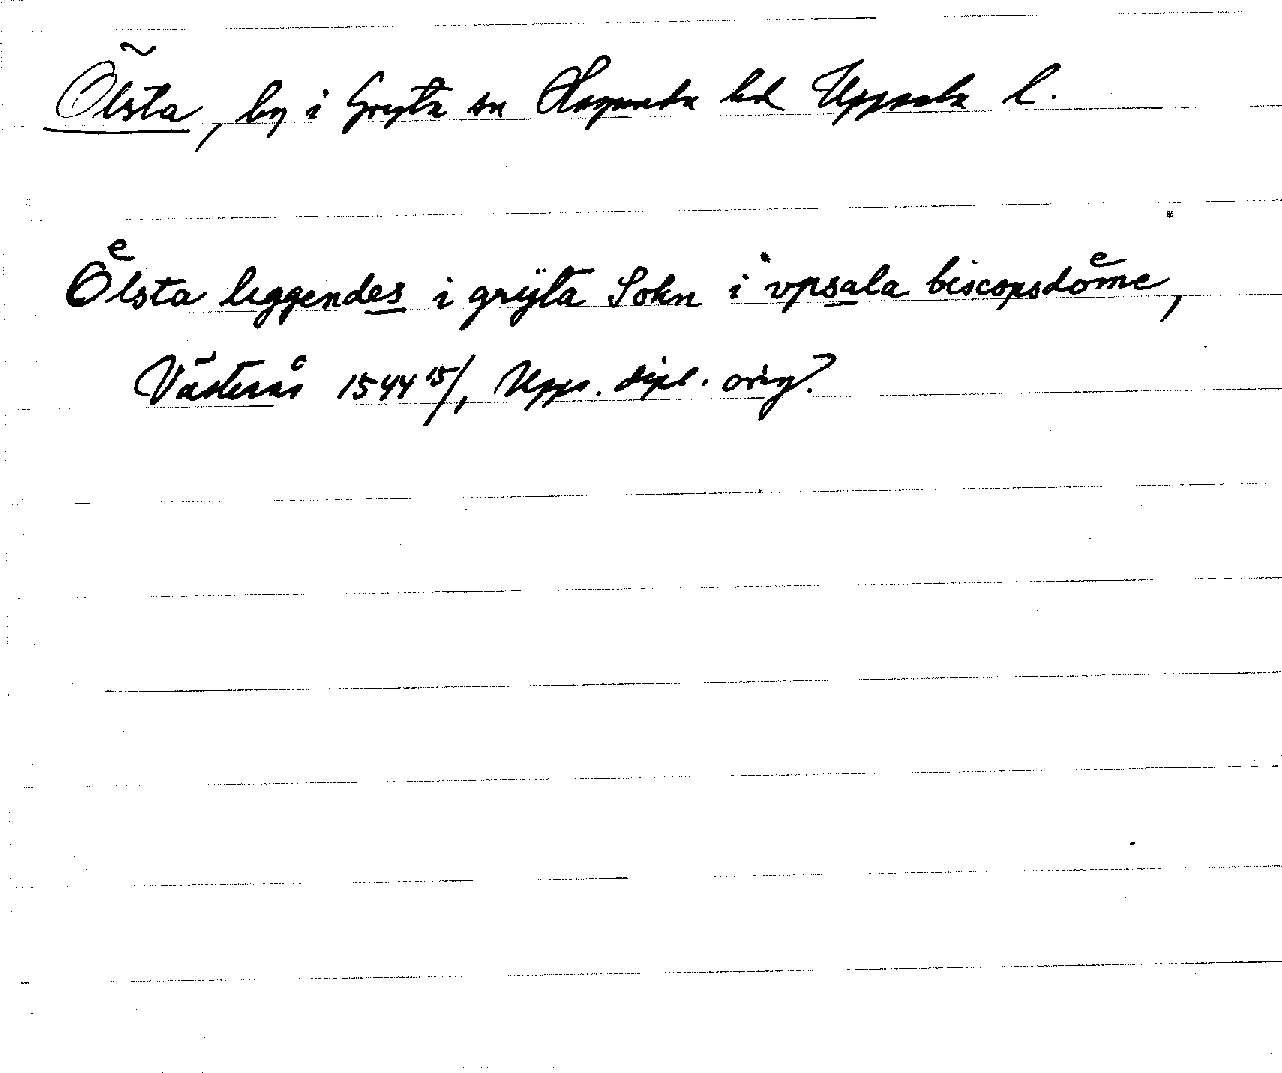 Ölsta, by i Gryta sn Hagunda hd Uppsala l.
Oͤlsta leggendes i grÿta Sokn i vpsala biscopsdoͤme,
Västerås 1544 15/, Upps. dipl. orig?